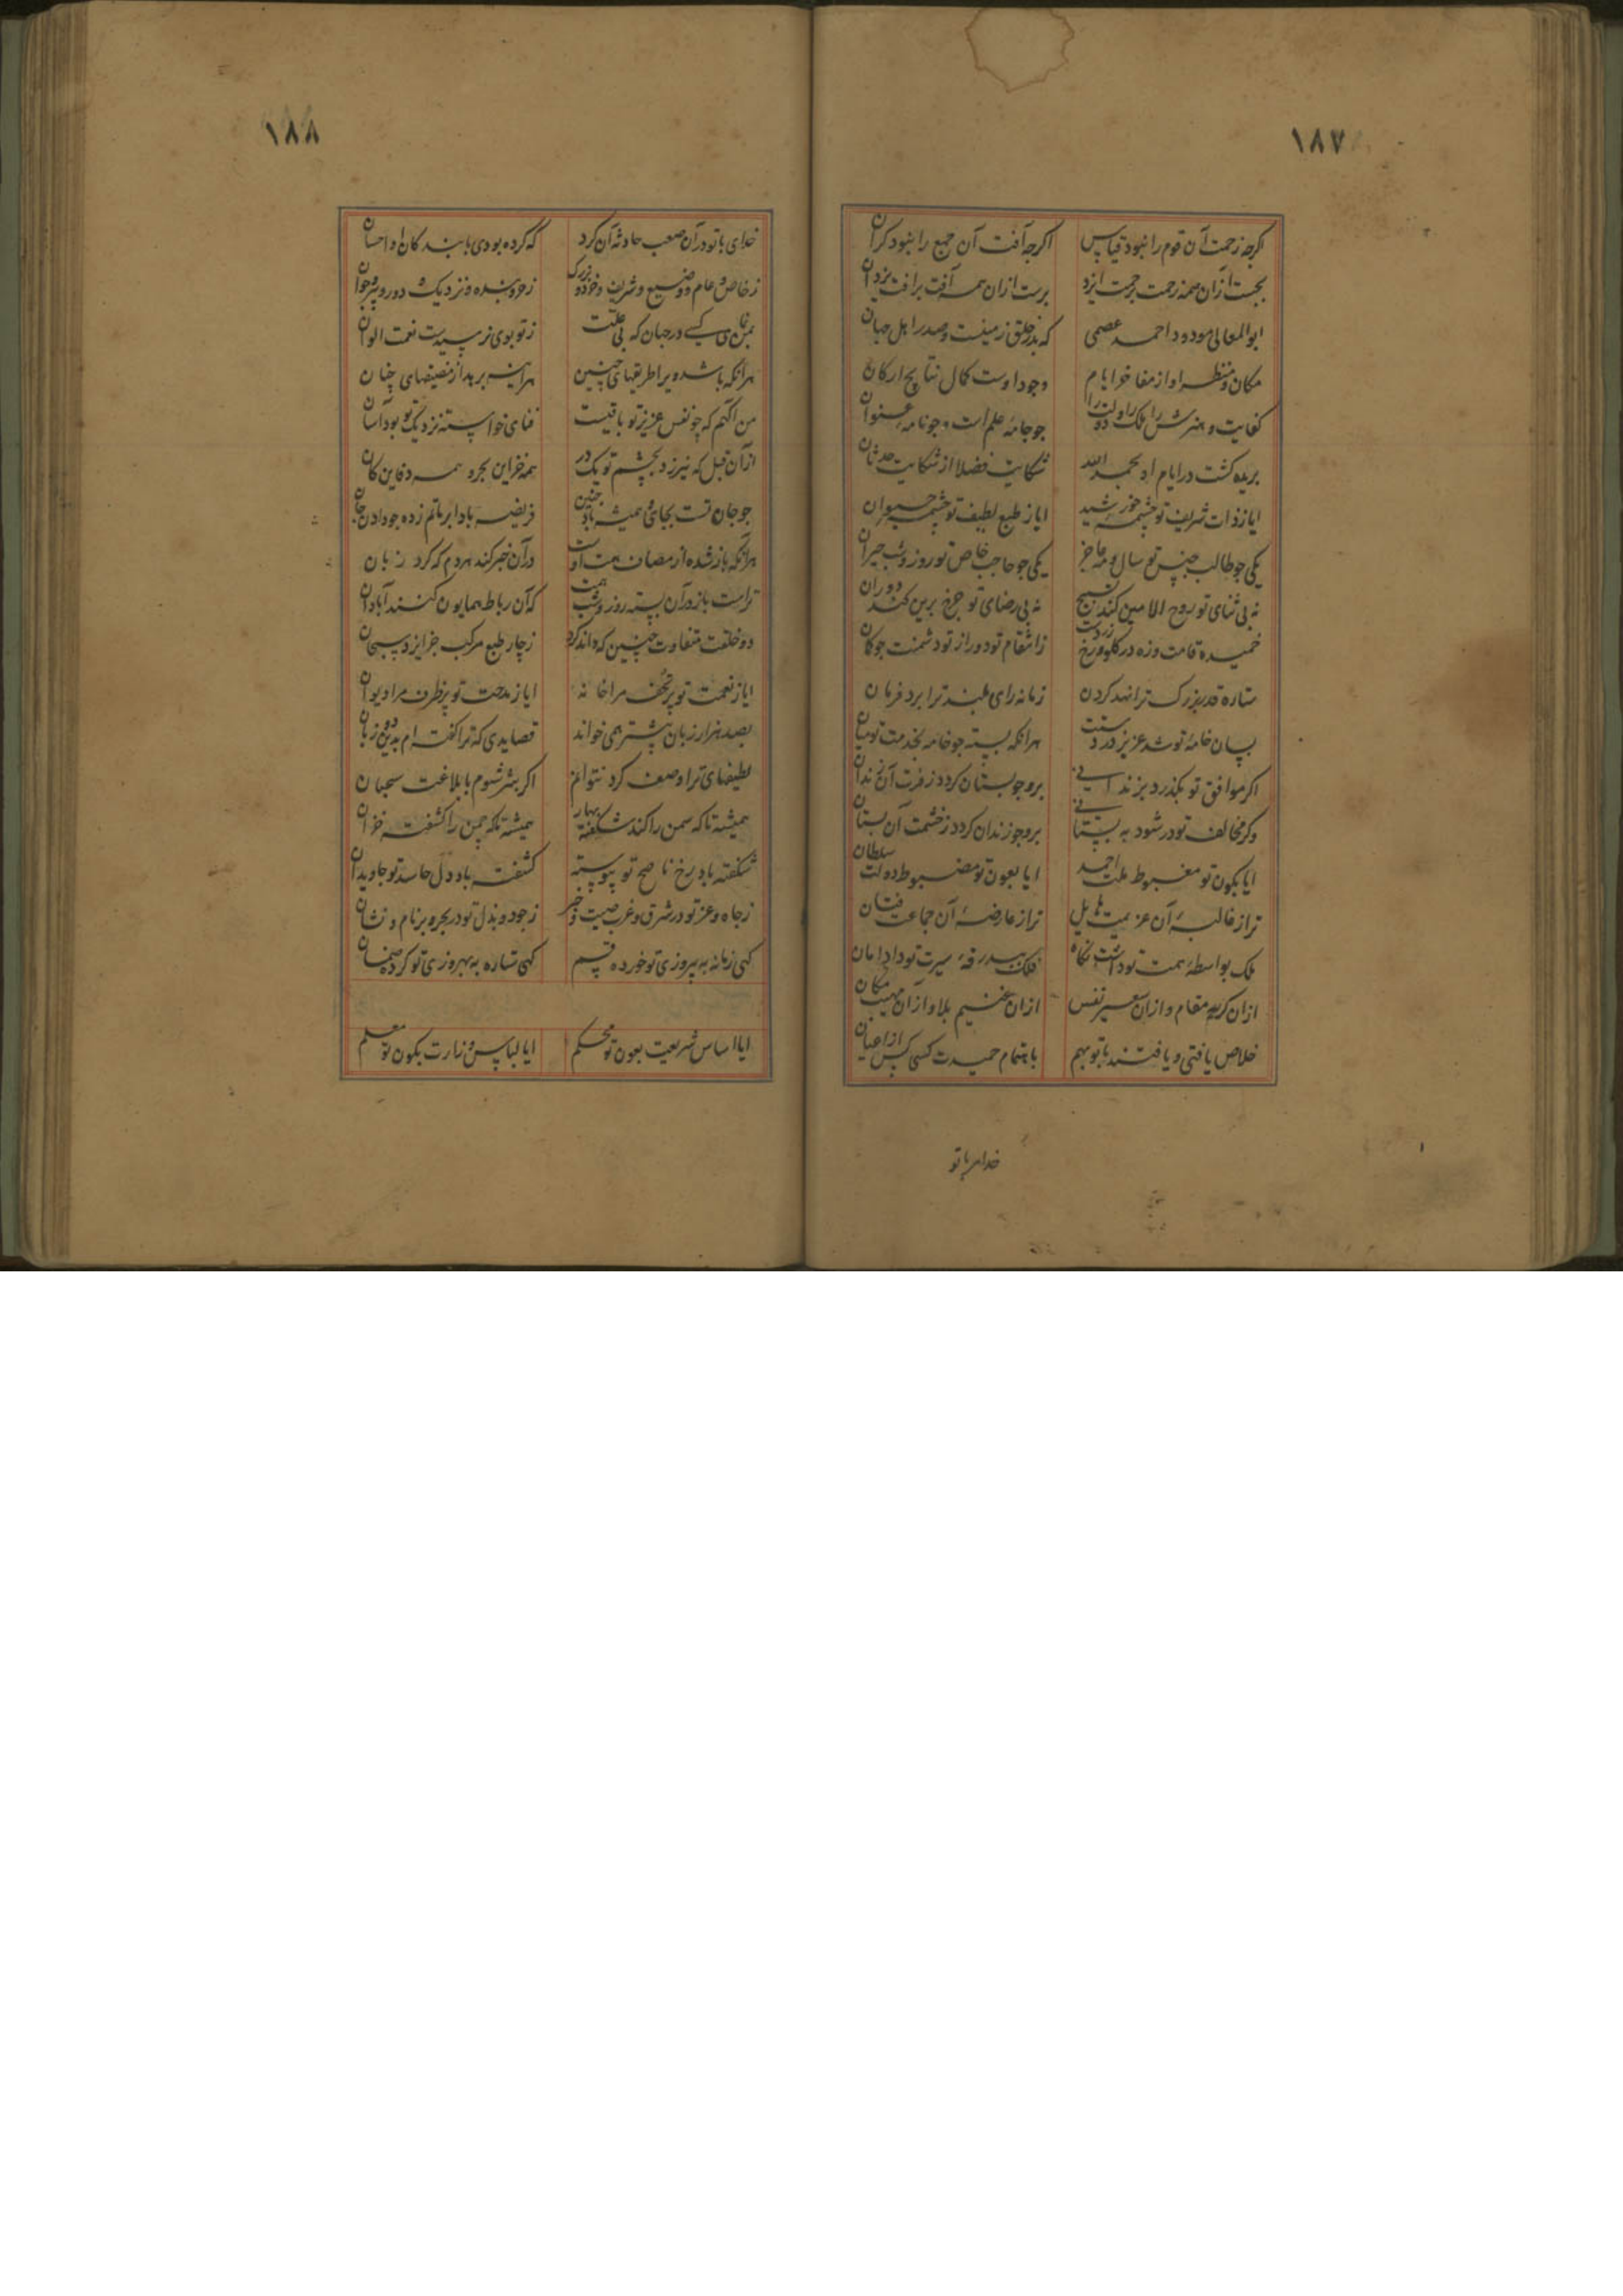 ۱۸۷
اکرچه زحمت آن قوم را نبود قیاس اکرچه آفت آن جمع را نبود کران
بجست ازان همه زحمت برحمت ایزد برست ازان همه آفت برافت یزدان
ابوالمعالی مودود احمد عصمی که بدر خلق زمینست و صدر اهل جهان
مکان و منظر او از مفاخر ایام وجود اوست کمال نتایج ارکان
کفایت و هنرش ملک را و دولت را جو جامه علم است و جو نامه عنوان
بریده کشت در ایام او بحمد الله شکایت فضلا از شکایت حدثان
ایا ز ذات شریف تو چشمه خورشید ایا ز طبع لطیف تو چشمه حیوان
یکی جو طالب جنس تو سال و مه عاجز یکی جو حاجب خاص تو روز و شب حیران
نه بی ثنای تو روح الامین کند تسبیح نه بی رضای تو جرخ برین کند دوران
خمیده قامت و زه در کلو و رخ زردست ز انتقام تو دور از تو دشمنت جو کمان
ستاره قدر بزرک ترا نهد کردن زمانه رای بلند ترا برد فرمان
بسان خامه تو شد عزیز در دستت هرانکه بسته جو خامه بخدمت تو میان
اکر موافق تو بکذرد بزندانی برو جو بستان کردد ز فرت آن زندان
وکر مخالف تو در شود به بستانی برو جو زندان کردد ز خشمت آن بستان
ایا بکون تو مغبوط ملت احمد ایا بعون تو مضبوط دولت سلطان
ترا ز غالبه آن عزیمت هایل ترا ز عارضه آن جماعت فتان
ملک بواسطه همت تو داشت نکاه فلک ببدرقه سیرت تو داد امان
ازان کریه مقام و ازان عسیر نفس ازان عظیم بلا و ازان مهیب مکان
خلاص یافتی و یافتند با تو بهم باهتمام حمیدت کسی کس از اعیان
خدای با تو
۱۸۸
خدای با تو در آن صعب حادثه آن کرد که کرده بودی با بندکان او احسان
ز خاص و عام و وضیع و شریف و خرد و بزرک
نماند کسی در جهان که بی علت ز تو بوی نرسیدست نعمت الوان
هرانکه باشد ویرا طریقهای چنین هراینه برهد از مضیقهای چنان
من آکهم که چو نفس عزیز تو باقیست فنای خواسته نزدیک تو بود آسان
ازان قبل که نیرزد بچشم تو یک در همه خزاین بحر و همه دفاین کان
جو جان تست بجای و همیشه باد جنین
هرانکه باز شده از مصاف همت او در آن خبر کند مردم که کرد زبان
تراست باز در آن بسته روز و شب همت که آن رباط همایون کنند آبادان
دو خلقت متفاوت چنین که داند کرد ز چار طبع مرکب جز ایزد سبحان
ایا ز نعمت تو پر تحف مرا خانه ایا ز مدحت تو پر ظرف مرا دیوان
بصد هزار زبان بیشتر همی خواند قصایدی که ترا کفته ام بدین دو زبان
لطیفهای ترا وصف کرد نتوانم اکر بشر شوم با بلاغت سحبان
همیشه تا که سمن را کند شکفته بهار همیشه تا که چمن را کند کشفته خزان
شکفته باد رخ ناصح تو پیوسته کشفته باد دل حاسد تو جاویدان
ز جاه و عز تو در شرق و غرب صیت و خبر ز جود و بذل تو در بحر و بر نام و نشان
کهی زمانه به پیروزی تو خورده قسم کهی ستاره به بهروزی تو کرده ضمان
ایا اساس شریعت بعون تو محکم ایا لباس وزارت بکون تو معلم